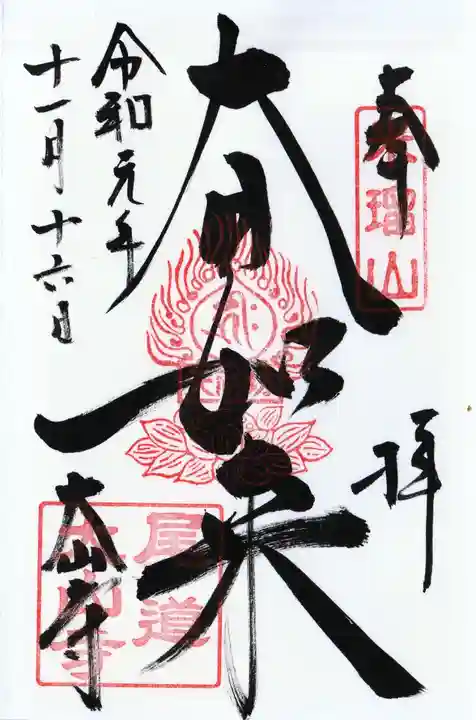 奉拝
瑠
山
大日如来
令和元年
十一月十六日
大山寺
尾道
大山寺